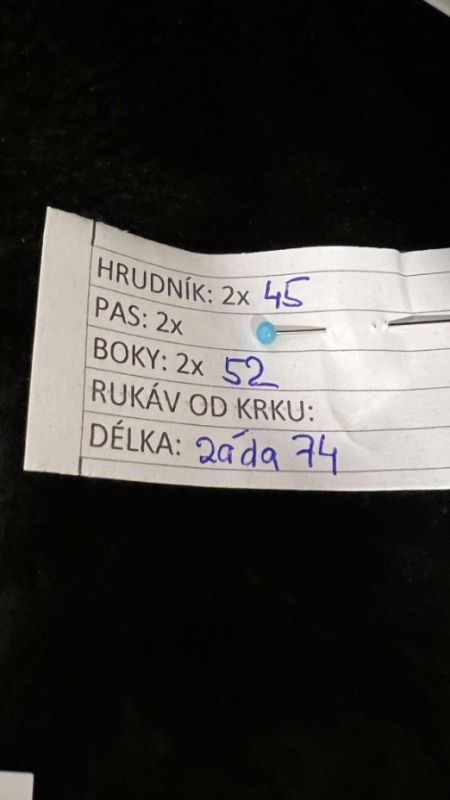 HRUDNÍK: 2x 45
PAS: 2x
BOKY: 2x 52
RUKÁV OD KRKU:
DÉLKA: záda 74